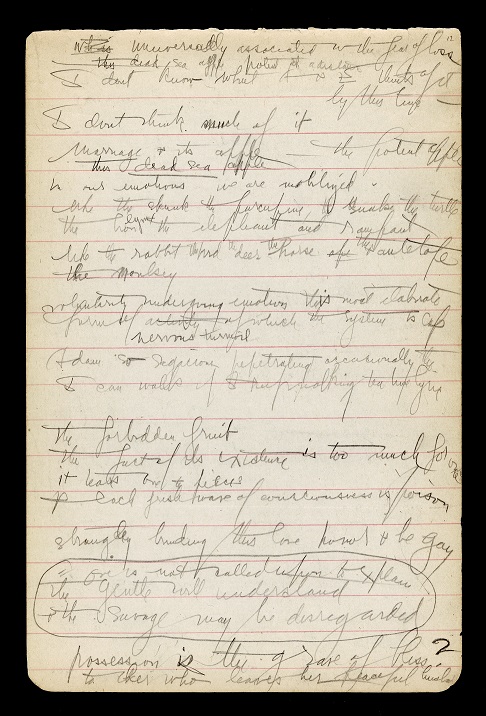 universally associated w the fear of loss
this dead sea apple
I dont know what A & E think of it
by this time —
I dont think much of it
marriage & its apple — the potent apple
this dead sea apple
In our emotions we are mobilized
like the skunk the porcupine the snake the turtle
the lion the elephant and rampant
like the rabbit the deer the horse ape the antelope
the monkey
voluntarily undergoing emotion this most elaborate
form of activity of which the system is cap
nervous turmoil
Adam so
I can walk if I
the forbidden fruit
the fact of its existence is too much for
it tears one to pieces
& each fresh wave of consciousness is poison
strangely binding this love honor & be gay
One is not called upon to explain
the Gentle will understand
& the Savage may be disregarded
2
possession is the grave of bliss
to her who leaves her peaceful